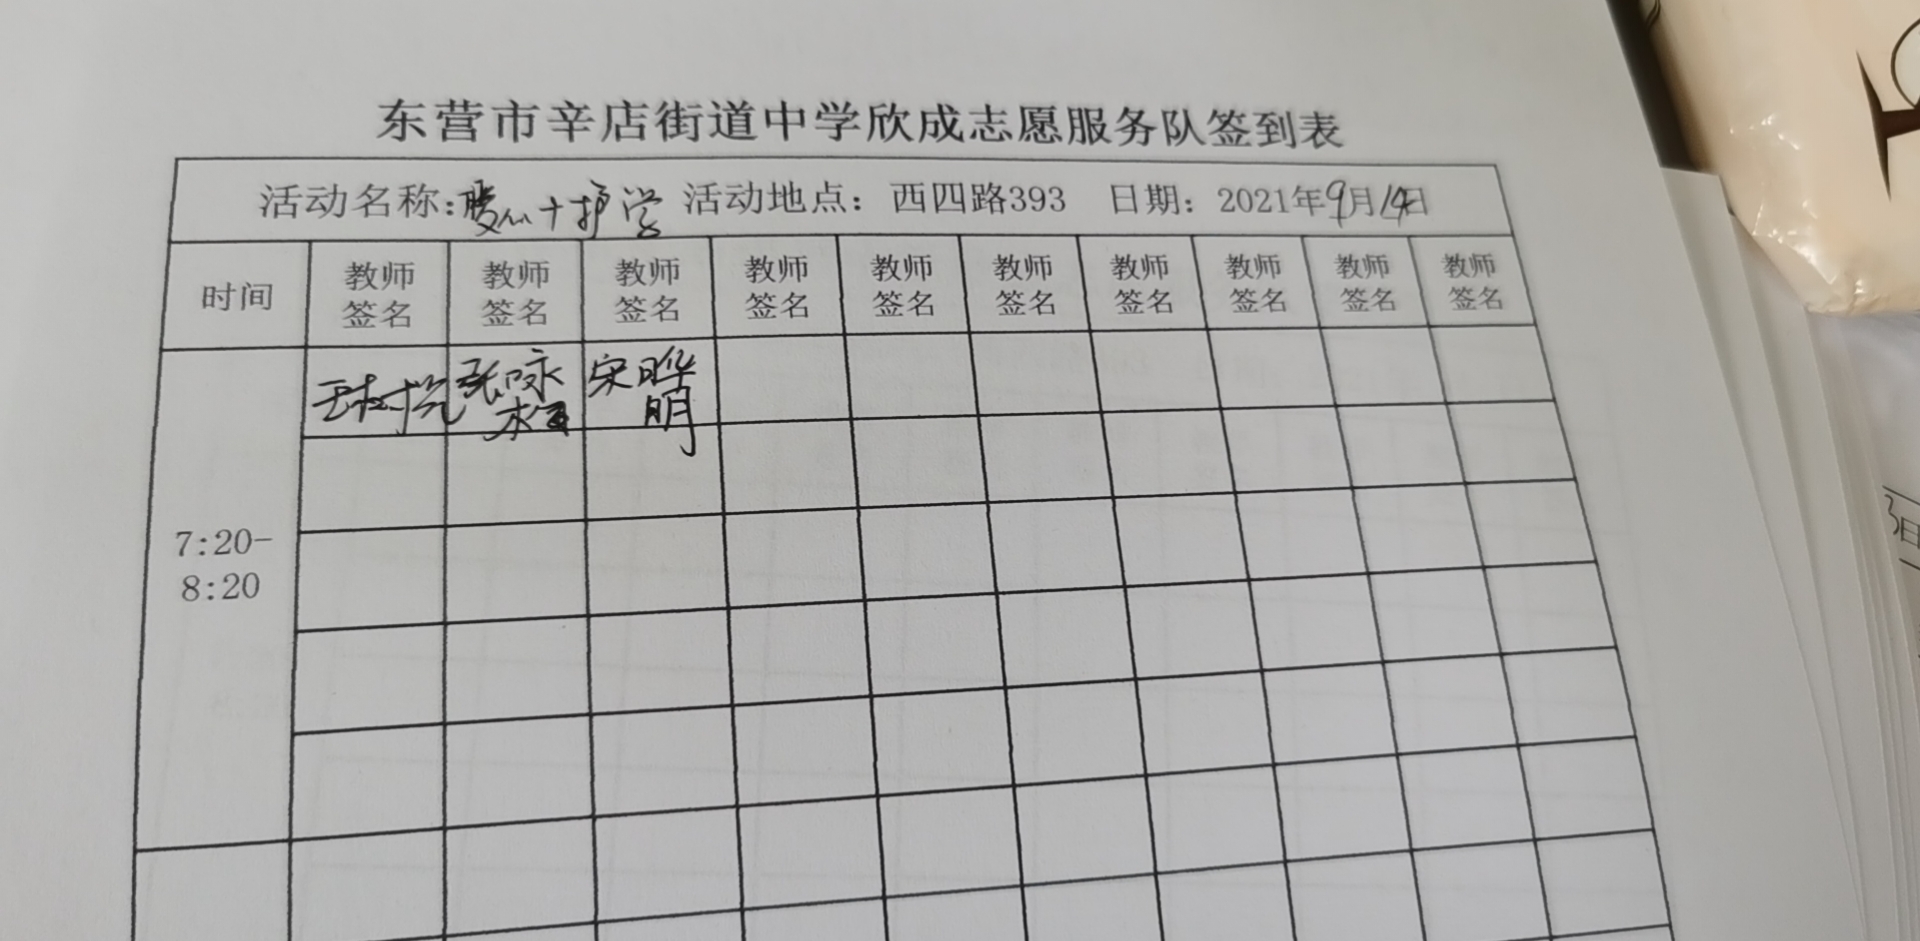 东营市辛店街道中学欣成志愿服务队签到表
活动名称:爱心十护学 活动地点：西四路393 日期：2021年9月14日
时间 教师签名 教师签名 教师签名 教师签名 教师签名 教师签名 教师签名 教师签名 教师签名 教师签名
张咏梅 宋晔明
7:20-
8:20